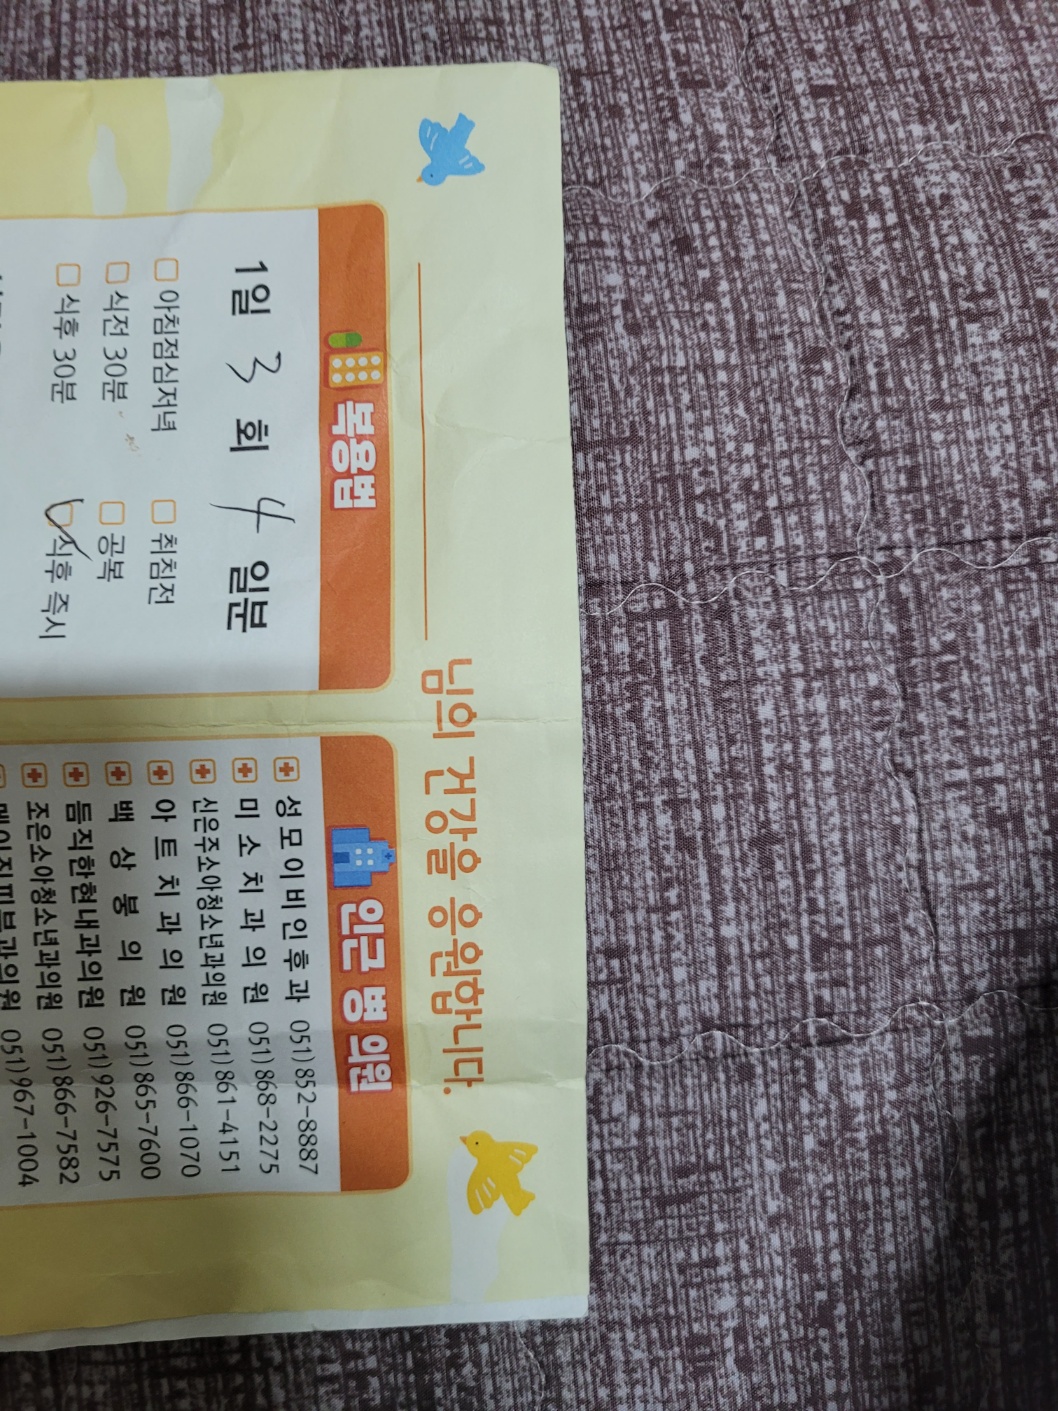 님의 건강을 응원합니다.
복용법
1일 3 회 4 일분
아침점심저녁 취침전
식전 30분 공복
식후 30분 식후 즉시
인근 병 의원
성모이비인후과 051)852-8887
미소치과의원 051)868-2275
신은주소아청소년과의원 051)861-4151
아트치과의원 051)866-1070
백상봉의원 051)865-7600
듬직한현내과의원 051)926-7575
조은소아청소년과의원 051)866-7582
051)967-1004